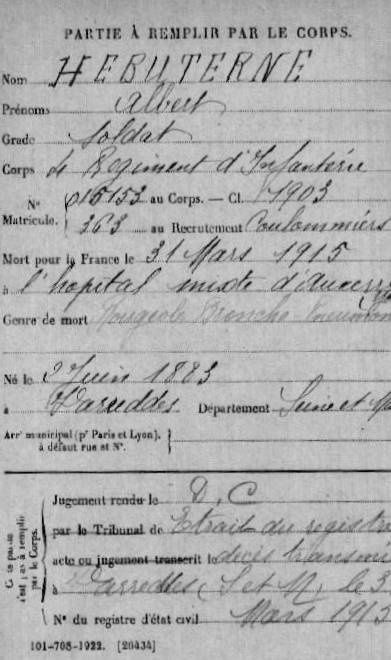 PARTIE À REMPLIR PAR LE CORPS.
Nom HÉBUTERNE
Prénoms Albert
Grade Soldat
Corps 4 Régiment d'Infanterie
N° 015153 au Corps. — Cl. 1903
Matricule. 363 au Recrutement Coulommiers
Mort pour la France le 31 Mars 1915
à l'hopital mixte d'Auxerre
Genre de mort Rougeole Broncho
Né le 2 Juin 1883
à Varreddes Département Seine et
Arrt municipal (pr Paris et Lyon),
à défaut rue et N°.
Jugement rendu le D. C
par le Tribunal de Extrait du
acte ou jugement transcrit le décès
à Varreddes (S et M) le 3
Mars 1915
N° du registre d'état civil
par le Corps.
101-708-1922. [26434]